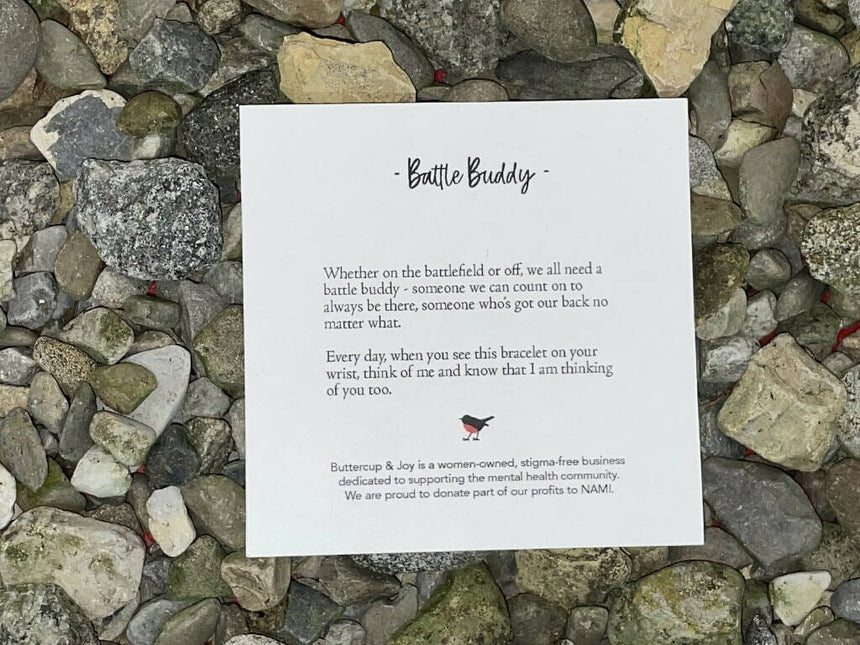 - Battle Buddy -
Whether on the battlefield or off, we all need a
battle buddy - someone we can count on to
always be there, someone who's got our back no
matter what.
Every day, when you see this bracelet on your
wrist, think of me and know that I am thinking
of you too.
Buttercup & Joy is a women-owned, stigma-free business
dedicated to supporting the mental health community.
We are proud to donate part of our profits to NAMI.